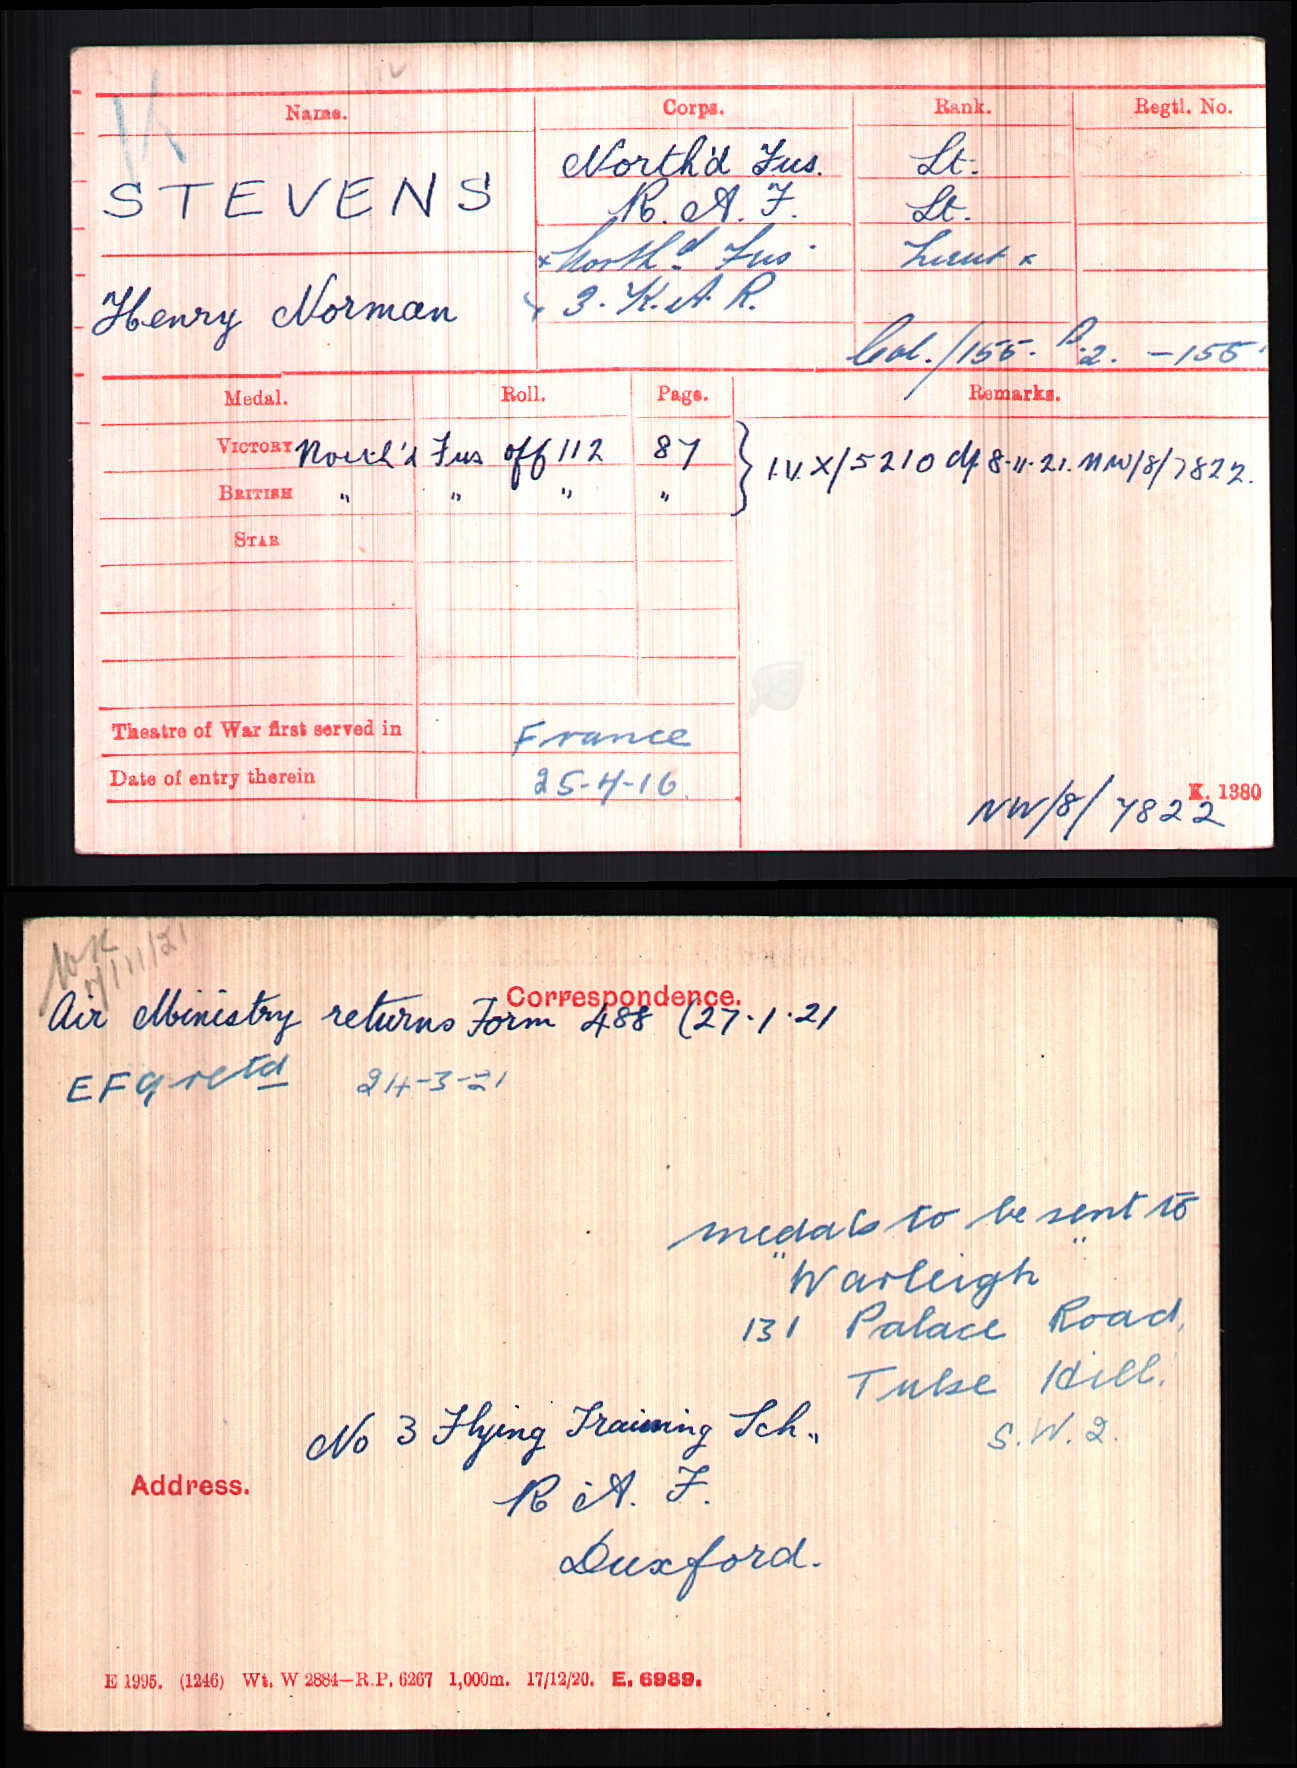 Name. Corps. Rank. Regtl. No.
STEVENS
Henry Norman
North'd Fus. Lt.
R. A. F. Lt.
x North'd Fus. Lieut x
x 3. K. A. R.
Col./155. P.2. - 155.
Medal. Roll. Page. Remarks.
VICTORY North'd Fus off 112 87 } I.V. X/5210 df 8-11-21. NW/8/7822.
BRITISH " " " "
STAR
Theatre of War first served in France
Date of entry therein 25-4-16.
K. 1380
NW/8/7822
/11/21
Correspondence.
Air Ministry returns Form 488 (27.1.21
EF9 retd 24-3-21
medals to be sent to
"Warleigh"
131 Palace Road,
Tulse Hill.
S.W.2.
No 3 Flying Training Sch.,
Address.
R. A. F.
Duxford.
E 1995. (1246) Wt. W 2884—R.P. 6267 1,000m. 17/12/20. E. 6989.